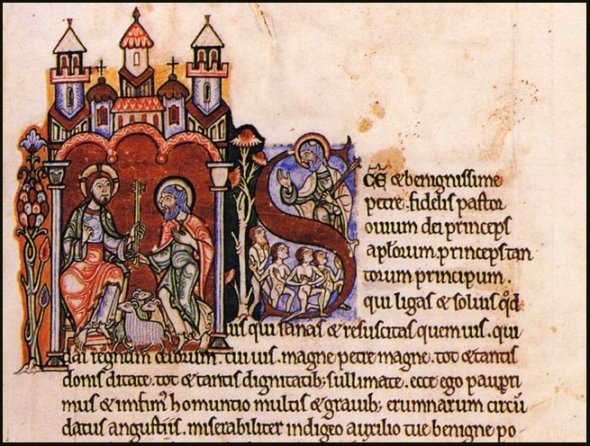 S CE & benignissime
petre. fidelis pastor
ouium dei princeps
aplorum. princeps tan
torum principum.
qui ligas & soluis qd
uis qui sanas & resuscitas quem uis. qui
das regnum celorum. cui uis. magne petre magne. tot & tantis
donis ditate. tot & tantis dignitatib; sullimate. ecce ego paupri
mus & infim' homuntio multis & grauib; erumnarum circū
datus angustiis. miserabiliter indigeo auxilio tue benigne po